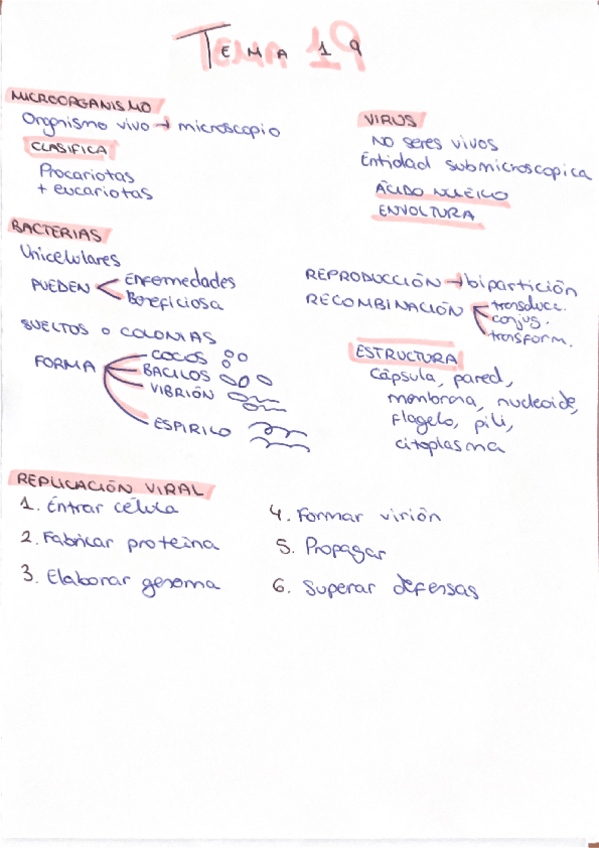 TEMA 19
MICROORGANISMO
Organismo vivo → microscopio
CLASIFICA
Procariotas
+ eucariotas
VIRUS
NO seres vivos
Entidad submicroscopica
ÁCIDO NUCLEICO
ENVOLTURA
BACTERIAS
Unicelulares
PUEDEN
Enfermedades
Beneficiosa
SUELTOS O COLONIAS
FORMA
COCOS
BACILOS
VIBRIÓN
ESPIRILO
REPRODUCCIÓN → bipartición
RECOMBINACIÓN
transducc.
conjug.
transform.
ESTRUCTURA
Cápsula, pared,
membrana, nucleoide,
flagelo, pili,
citoplasma
REPLICACIÓN VIRAL
1. Entrar célula
2. Fabricar proteina
3. Elaborar genoma
4. Formar virión
5. Propagar
6. Superar defensas